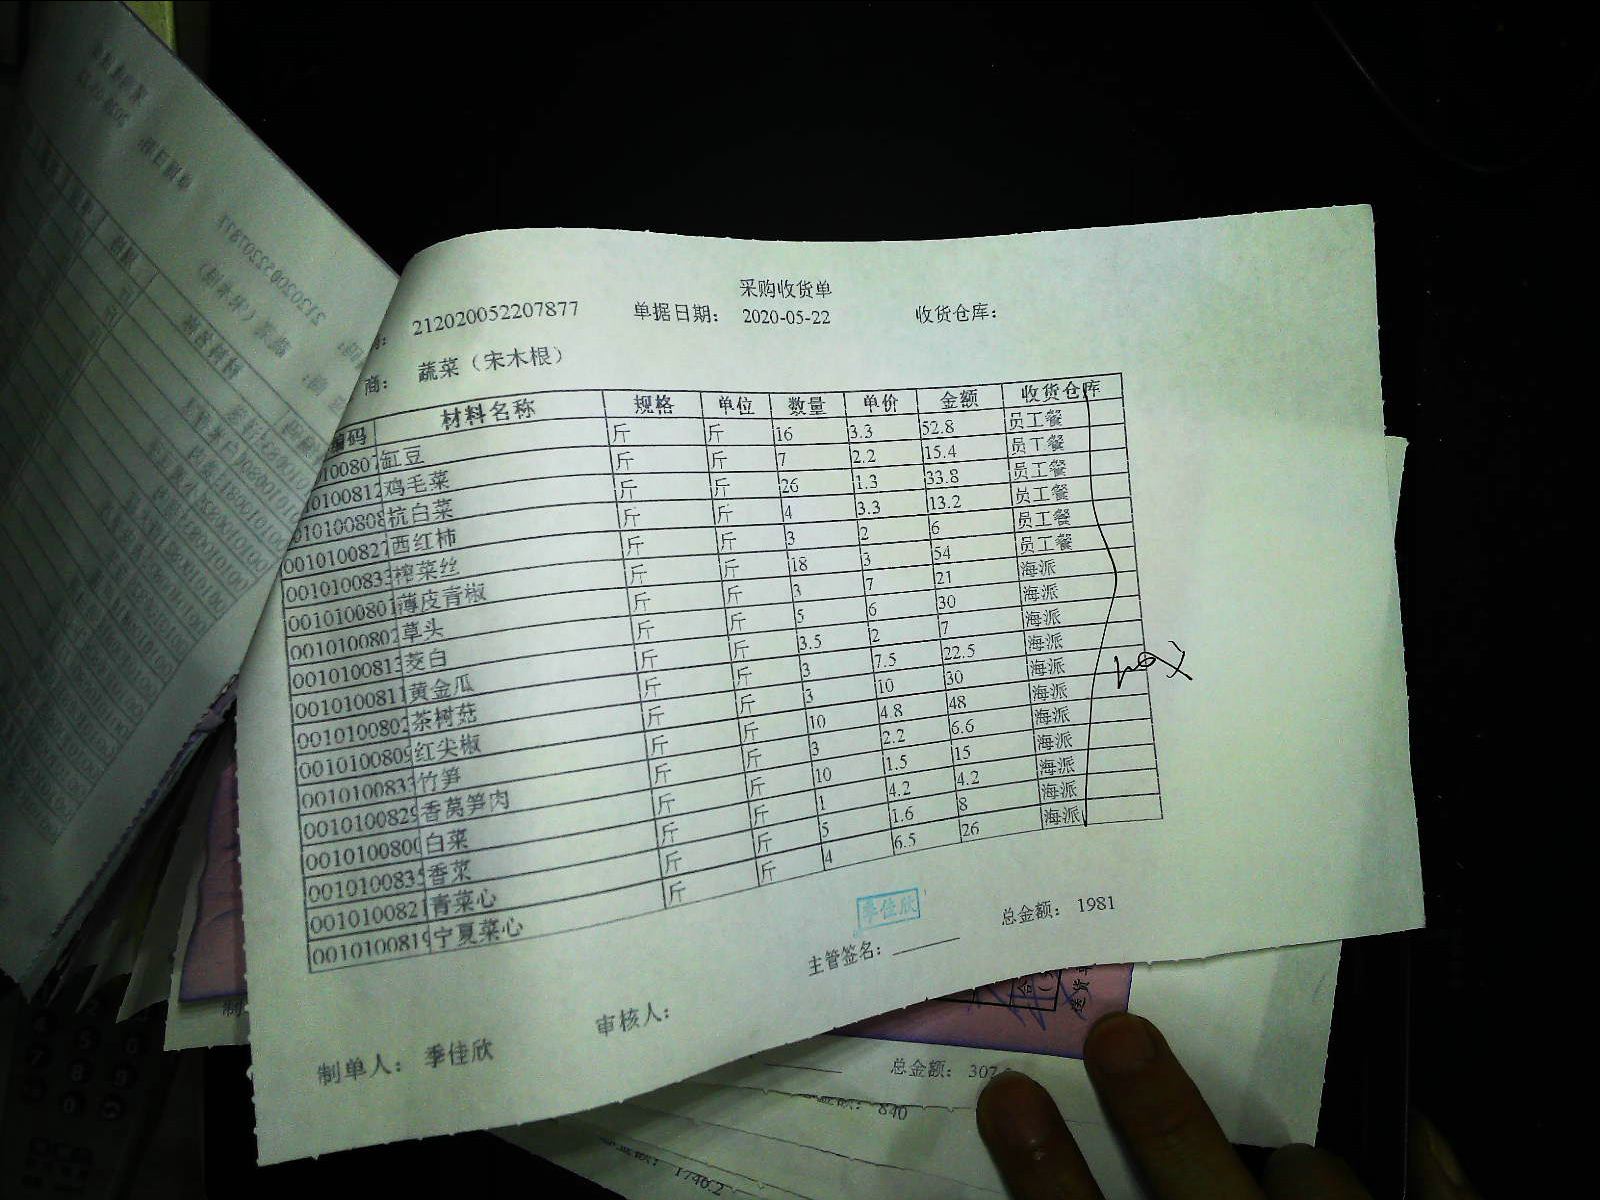 采购收货单
212020052207877 单据日期: 2020-05-22 收货仓库:
商: 蔬菜（宋木根）
编码 材料名称 规格 单位 数量 单价 金额 收货仓库
100807 缸豆 斤 斤 16 3.3 52.8 员工餐
10100812 鸡毛菜 斤 斤 7 2.2 15.4 员工餐
010100808 杭白菜 斤 斤 26 1.3 33.8 员工餐
0010100827 西红柿 斤 斤 4 3.3 13.2 员工餐
001010083 榨菜丝 斤 斤 3 2 6 员工餐
0010100801 薄皮青椒 斤 斤 18 3 54 员工餐
0010100802 草头 斤 斤 3 7 21 海派
0010100813 茭白 斤 斤 5 6 30 海派
0010100811 黄金瓜 斤 斤 3.5 2 7 海派
0010100802 茶树菇 斤 斤 3 7.5 22.5 海派
0010100809 红尖椒 斤 斤 3 10 30 海派
001010083 竹笋 斤 斤 10 4.8 48 海派
0010100829 香莴笋肉 斤 斤 3 2.2 6.6 海派
0010100800 白菜 斤 斤 10 1.5 15 海派
0010100835 香菜 斤 斤 1 4.2 4.2 海派
0010100821 青菜心 斤 斤 5 1.6 8 海派
0010100819 宁夏菜心 斤 斤 4 6.5 26 海派
季佳欣
主管签名: 总金额: 1981
制单人: 季佳欣 审核人:
总金额: 307
840
1746.2